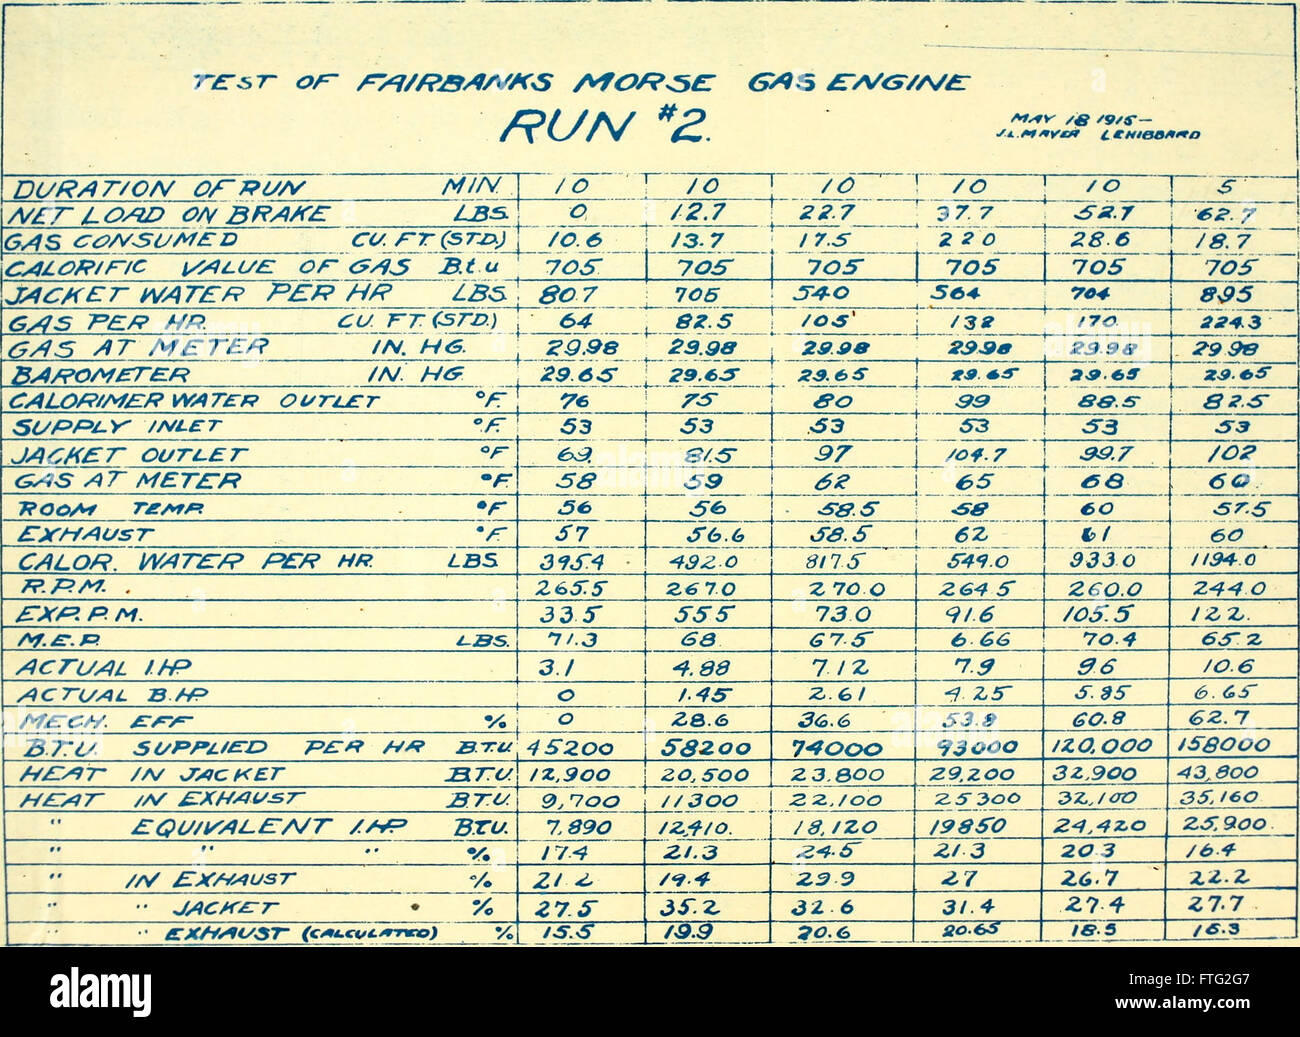 TEST OF FAIRBANKS MORSE GAS ENGINE
RUN #2.
MAY 18 1915-
J.L.MAYER L.E.HIBBARD
DURATION OF RUN MIN. 10 10 10 10 10 5
NET LOAD ON BRAKE LBS. 0 12.7 22.7 37.7 52.7 62.7
GAS CONSUMED CU. FT. (STD.) 10.6 13.7 17.5 220 28.6 18.7
CALORIFIC VALUE OF GAS B.t.u 705 705 705 705 705 705
JACKET WATER PER HR LBS. 807 705 540 564 704 895
GAS PER HR. CU. FT. (STD.) 64 82.5 105 132 170 224.3
GAS AT METER IN. HG. 29.98 29.98 29.98 29.98 29.98 29.98
BAROMETER IN. HG. 29.65 29.65 29.65 29.65 29.65 29.65
CALORIMER WATER OUTLET °F 76 75 80 99 88.5 82.5
SUPPLY INLET °F. 53 53 53 53 53 53
JACKET OUTLET °F 69 81.5 97 104.7 99.7 102
GAS AT METER °F. 58 59 62 65 68 60
ROOM TEMP. °F 56 56 58.5 58 60 57.5
EXHAUST °F. 57 56.6 58.5 62 61 60
CALOR. WATER PER HR. LBS. 395.4 492.0 817.5 549.0 933.0 1194.0
R.P.M. 265.5 267.0 270.0 264.5 260.0 244.0
EXP. P. M. 33.5 55.5 73.0 91.6 105.5 122.
M.E.P. LBS. 71.3 68 67.5 6.66 70.4 65.2
ACTUAL I.HP. 3.1 4.88 7.12 7.9 9.6 10.6
ACTUAL B.HP. 0 1.45 2.61 4.25 5.85 6.65
MECH. EFF % 0 28.6 36.6 53.8 60.8 62.7
B.T.U. SUPPLIED PER HR B.T.U. 45200 58200 74000 93000 120,000 158000
HEAT IN JACKET B.T.U. 12,900 20,500 23,800 29,200 32,900 43,800
HEAT IN EXHAUST B.T.U. 9,700 11300 22,100 25300 32,100 35,160
" EQUIVALENT I.HP. B.T.U. 7,890 12,410. 18,120 19850 24,420 25,900
" " " % 17.4 21.3 24.5 21.3 20.3 16.4
" IN EXHAUST % 21.2 19.4 29.9 27 26.7 22.2
" " JACKET % 27.5 35.2 32.6 31.4 27.4 27.7
" " EXHAUST (CALCULATED) % 15.5 19.9 20.6 20.65 18.5 16.3
alamy
Image ID: FTG2G7
www.alamy.com